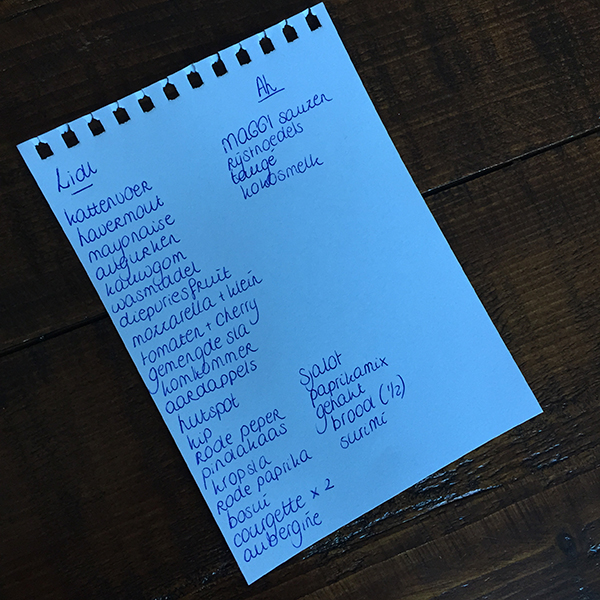 Lidl
kattenvoer
havermout
mayonaise
augurken
kauwgom
wasmiddel
diepvriesfruit
mozzarella + klein
tomaten + cherry
gemengde sla
komkommer
aardappels
hutspot
kip
Rode peper
pindakaas
kropsla
Rode paprika
bosui
courgette x 2
aubergine
sjalot
paprikamix
gehakt
brood (1/2)
surimi
Ah
MAGGI sauzen
rijstnoedels
taugé
kokosmelk